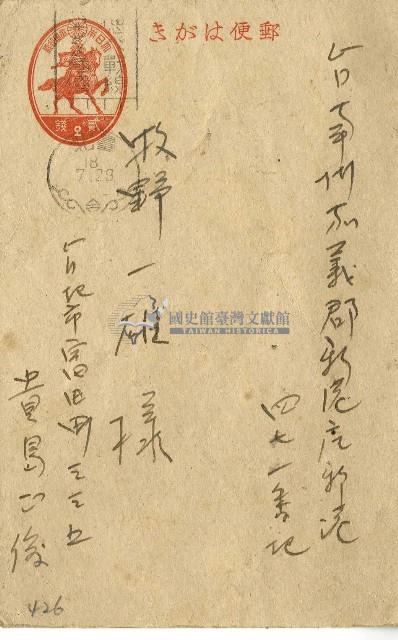 郵便はがき
台南州嘉義郡新港庄新港
四七一番地
牧野一雄様
台北市富田町三三五
貴島正俊
大日本帝國郵便
貳錢
2
18
7.23
國史館臺灣文獻館
TAIWAN HISTORICA
426